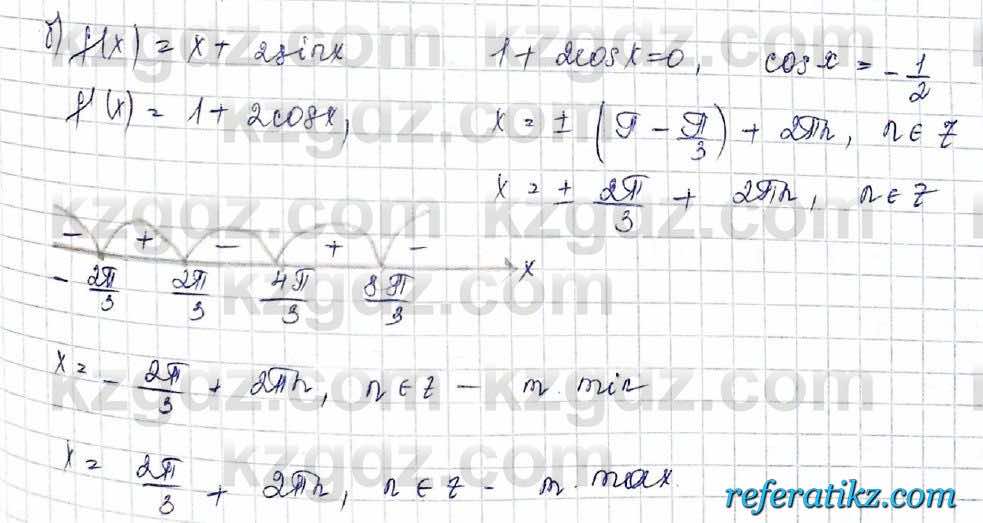 б) f(x) = x + 2sinx    1 + 2cosx = 0,    cosx = -1/2
f'(x) = 1 + 2cosx,    x = ± (π - π/3) + 2πn, n ∈ Z
x = ± 2π/3 + 2πn, n ∈ Z
- + - + -
-2π/3    2π/3    4π/3    8π/3    x
x = -2π/3 + 2πn, n ∈ Z — т. min
x = 2π/3 + 2πn, n ∈ Z - т. max.
kzgdz.com
referatikz.com